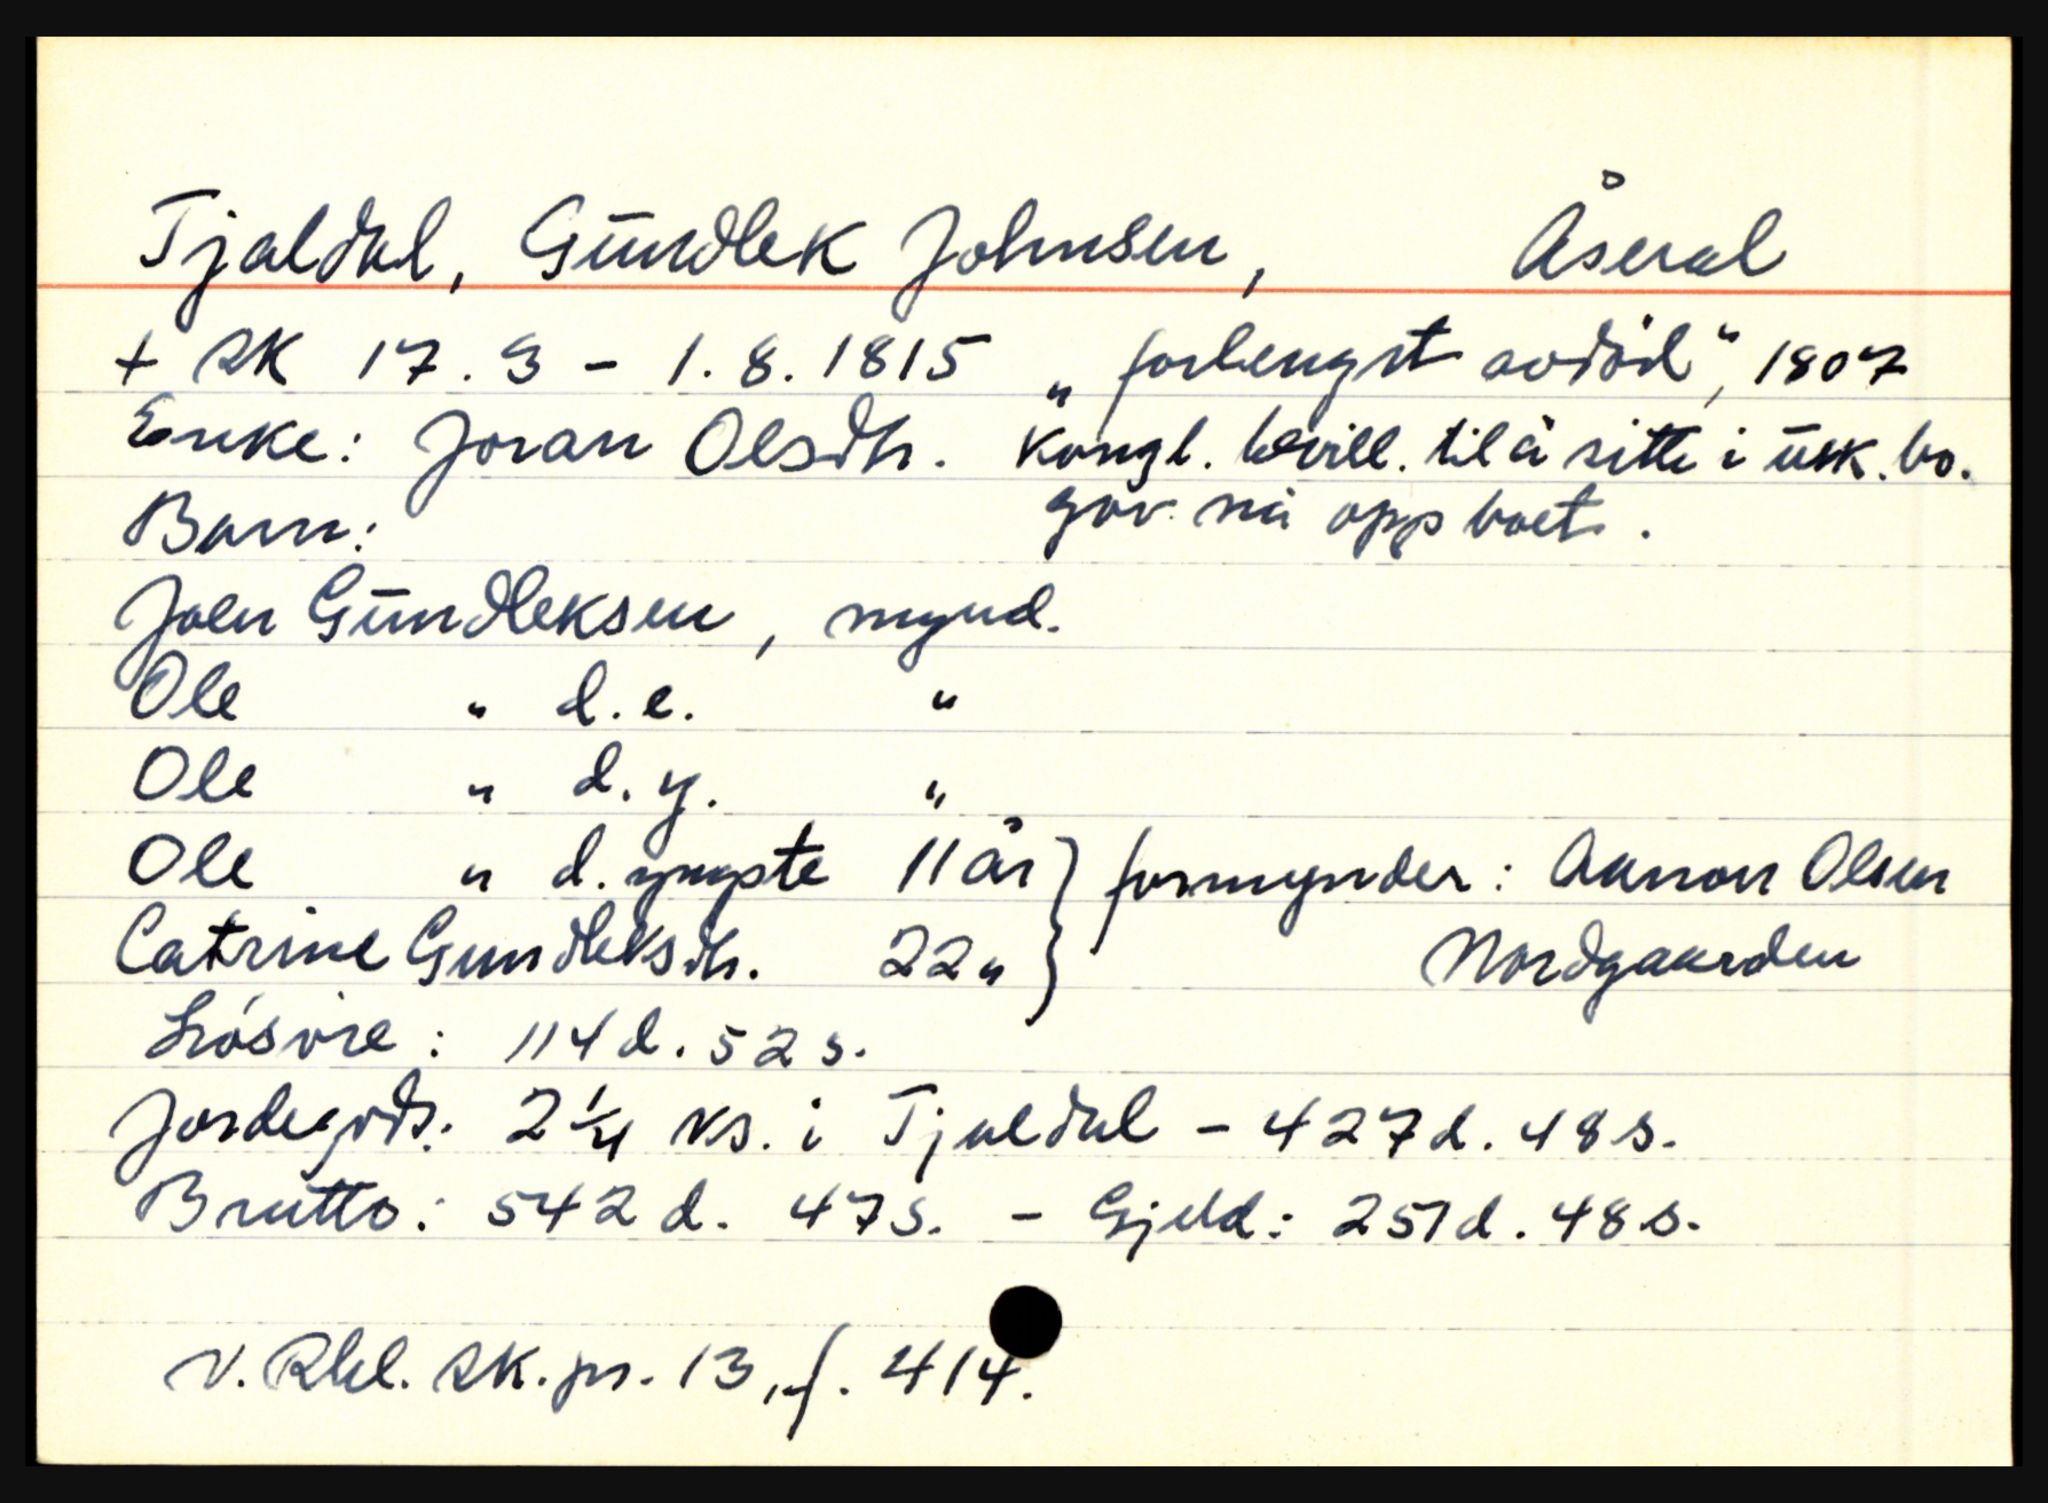 Tjaldal, Gündlek Johnsen, Åseral
+ SK 17.3 - 1.8.1815 „forlengst avdöd“, 1807
Enke: Joran Olsdtr. Kongl. bevill. til å sitte i üsk. bo.
Barn: gav nü opp boet.
John Gündleksen, mynd.
Ole " d.e. "
Ole " d.y. "
Ole " d. yngste 11 år } formynder: Aanon Olsen
Catrine Gundleksdtr. 22 " } Nordgaarden
Lösöre: 114 d. 52 s.
Jordegods: 2 1/4 ks. i Tjaldal - 427 d. 48 s.
Brütto: 542 d. 47 s. - Gjeld: 251 d. 48 s.
V. Rbl. SK. pr. 13, f. 414.